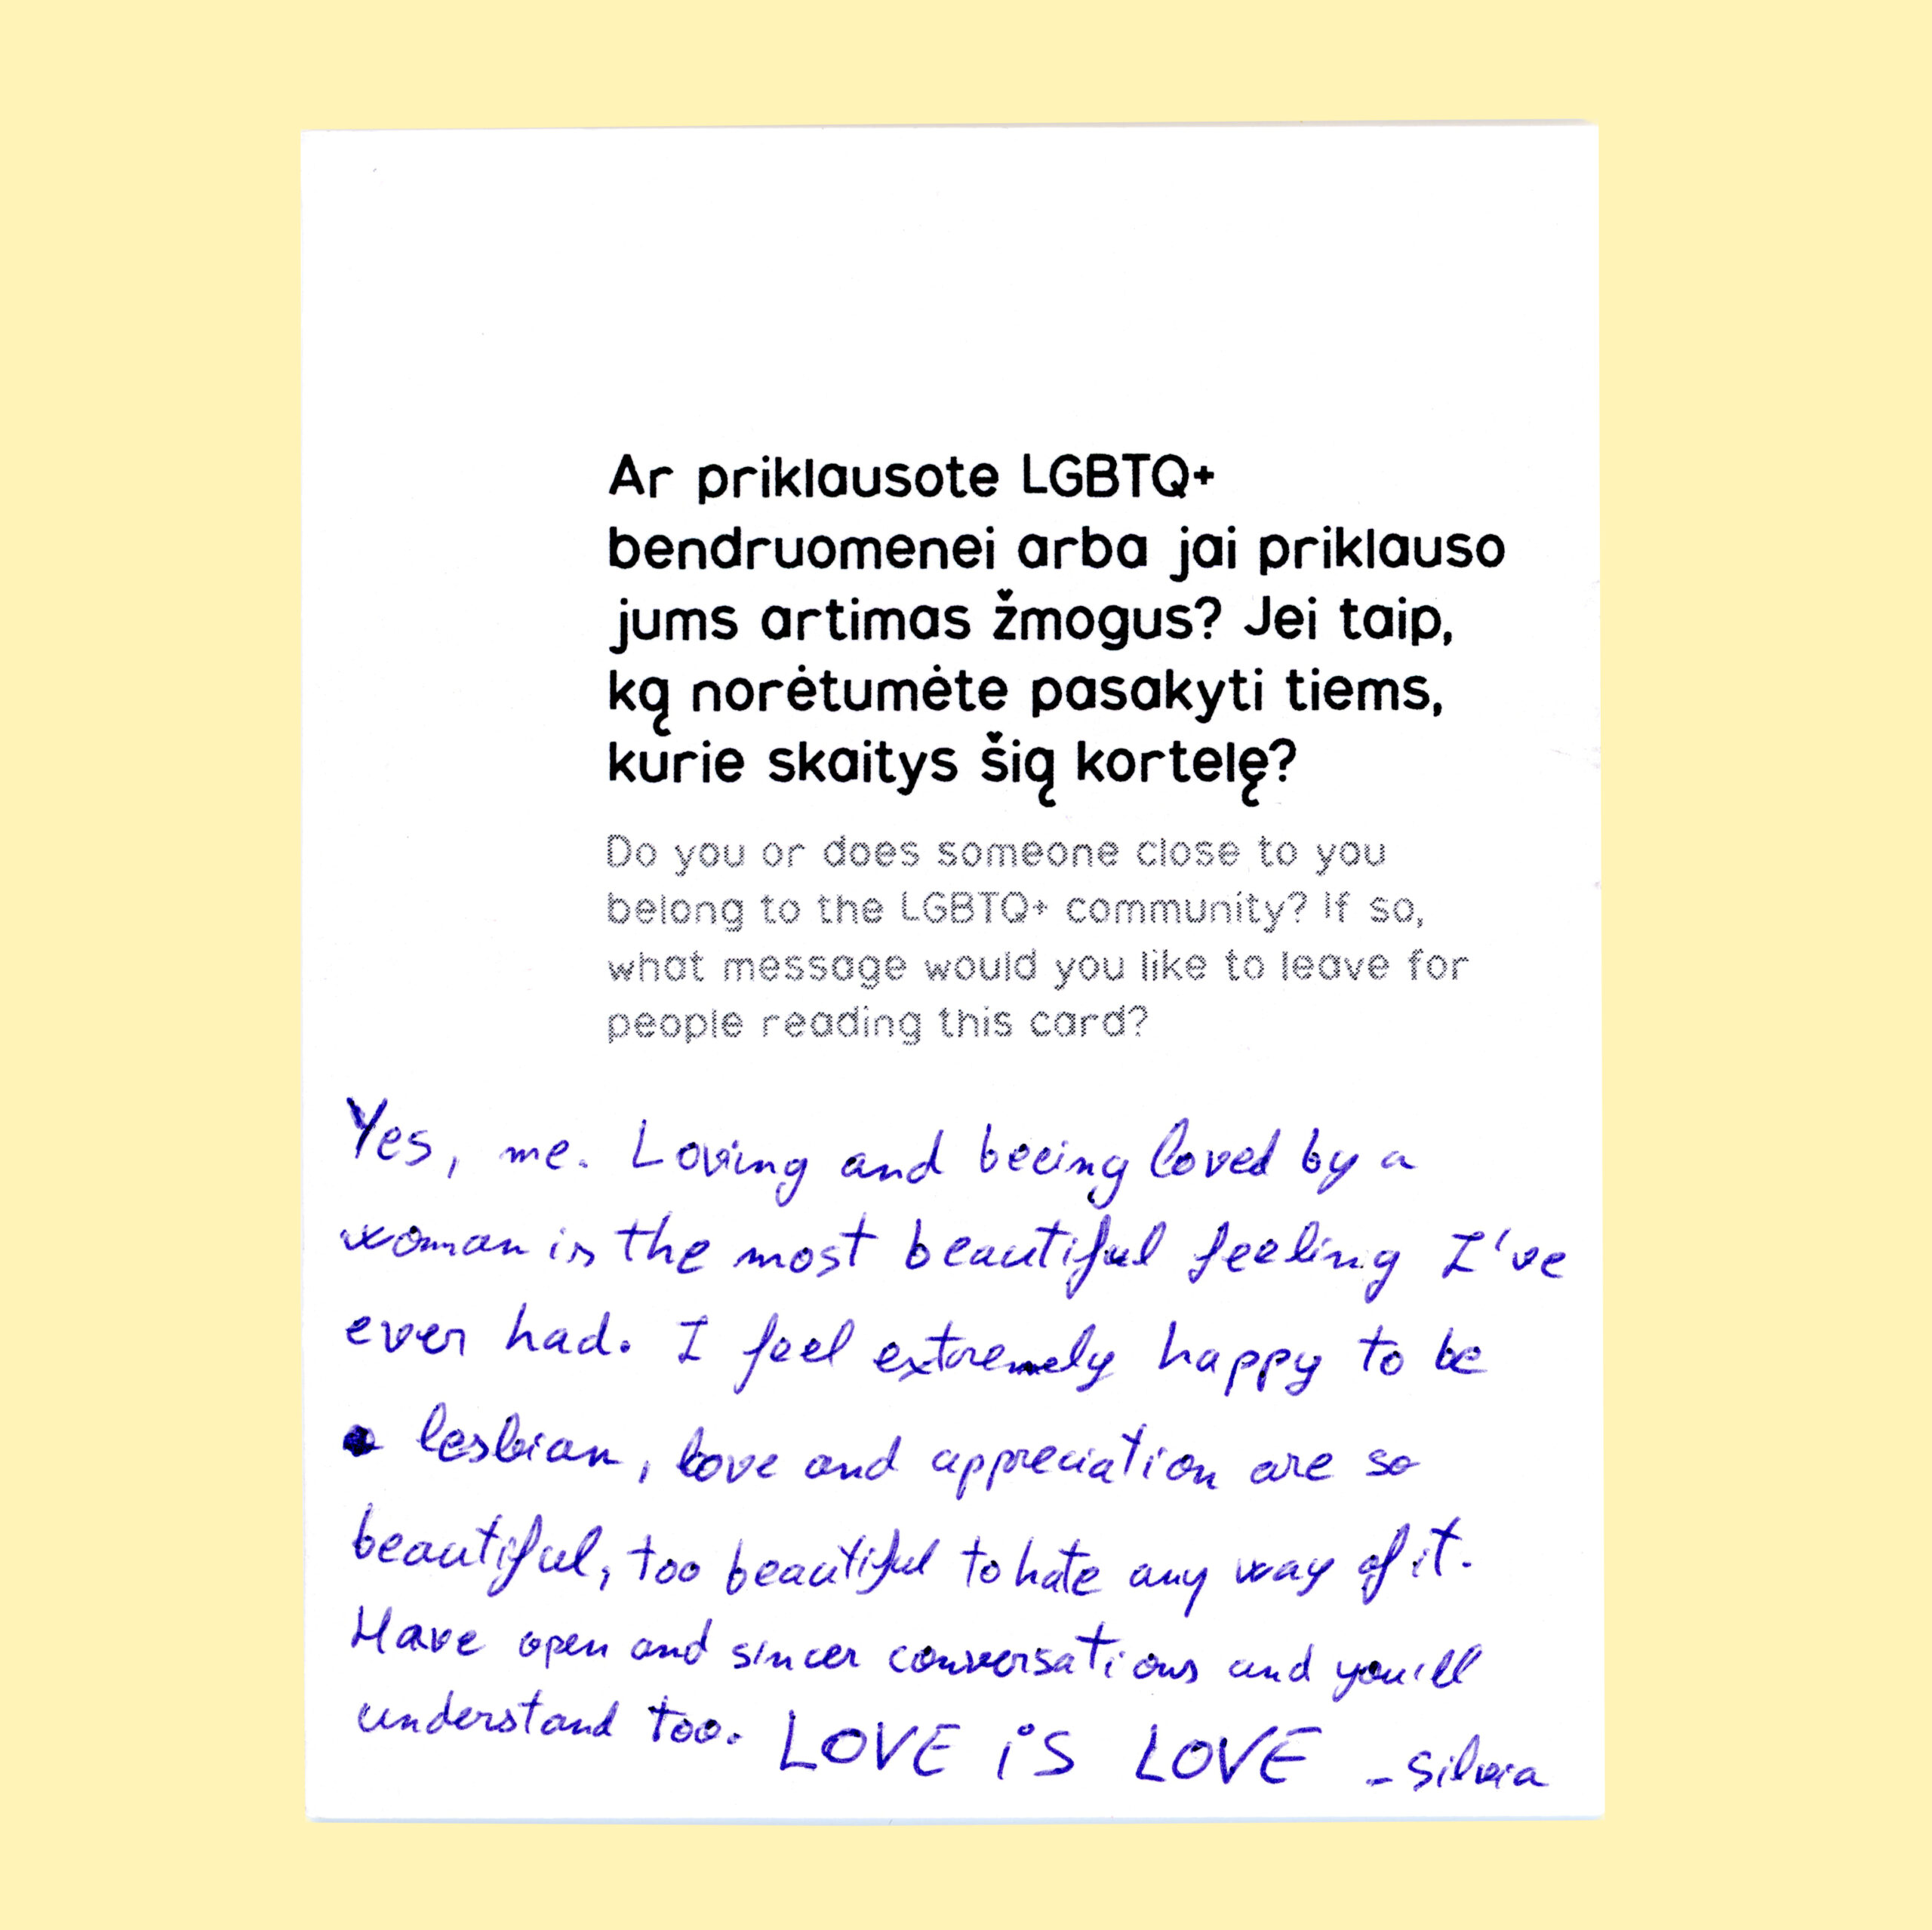 Ar priklausote LGBTQ+
bendruomenei arba jai priklauso
jums artimas žmogus? Jei taip,
ką norėtumėte pasakyti tiems,
kurie skaitys šią kortelę?
Do you or does someone close to you
belong to the LGBTQ+ community? If so,
what message would you like to leave for
people reading this card?
Yes, me. Loving and beeing loved by a
woman is the most beautiful feeling I've
ever had. I feel extremely happy to be
a lesbian, love and appreciation are so
beautiful, too beautiful to hate any way of it.
Have open and sincer conversations and you'll
understand too. LOVE iS LOVE - Silvia